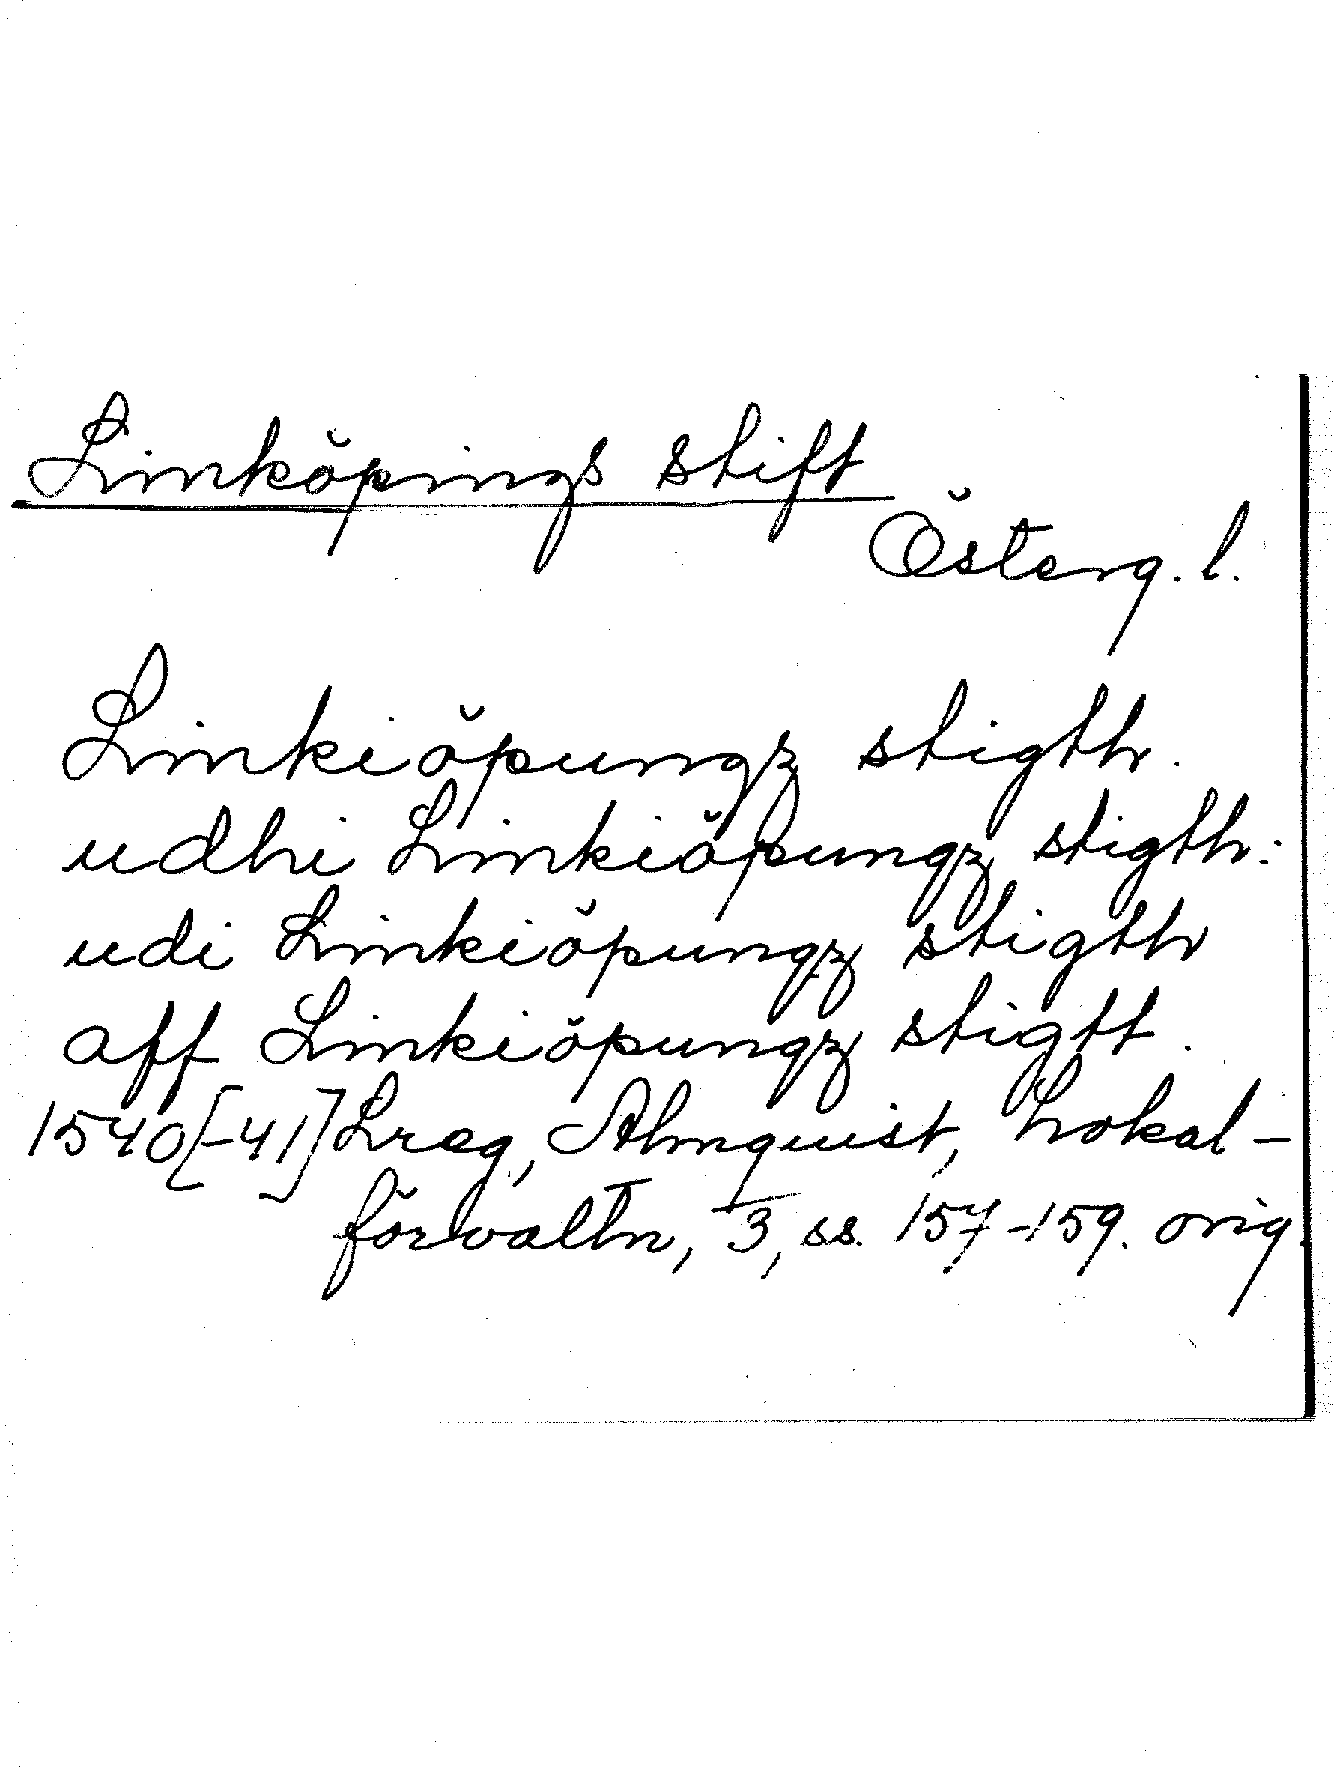 Linköpings stift
Österg. l.
Linkiöpungz stigth.
udhi Linkiöpungz stigth:
udi Linkiöpungz stigth
aff Linkiöpungz stigtt.
1540[-41] Lreg, Almquist, Lokal-
förvaltn, 3, ss. 157-159. orig.